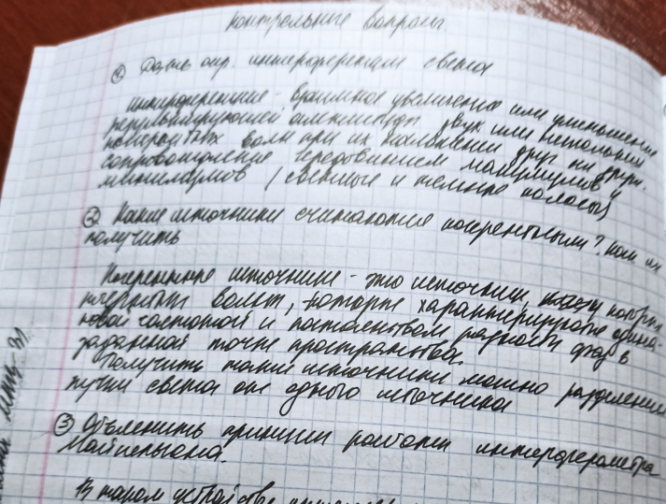 Контрольные вопросы.
① Дать опр. интерференции света
интерференция - взаимное увеличение или уменьшение
результирующей амплитуды двух или нескольких
когерентных волн при их наложении друг на друга.
сопровождение чередованием максимумов и
минимумов (светлые и темные полосы)
② Какие источники считаются когерентными? как их
получить
Когерентные источники - это источники
когерентных волн, которые характеризуются
новой частотой и постоянством разности фаз в
заданной точке пространства.
Получить такие источники можно разделением
пучка света от одного источника
③ Объяснить принцип работы интерферометра
Майкельсона.
В таком устройстве